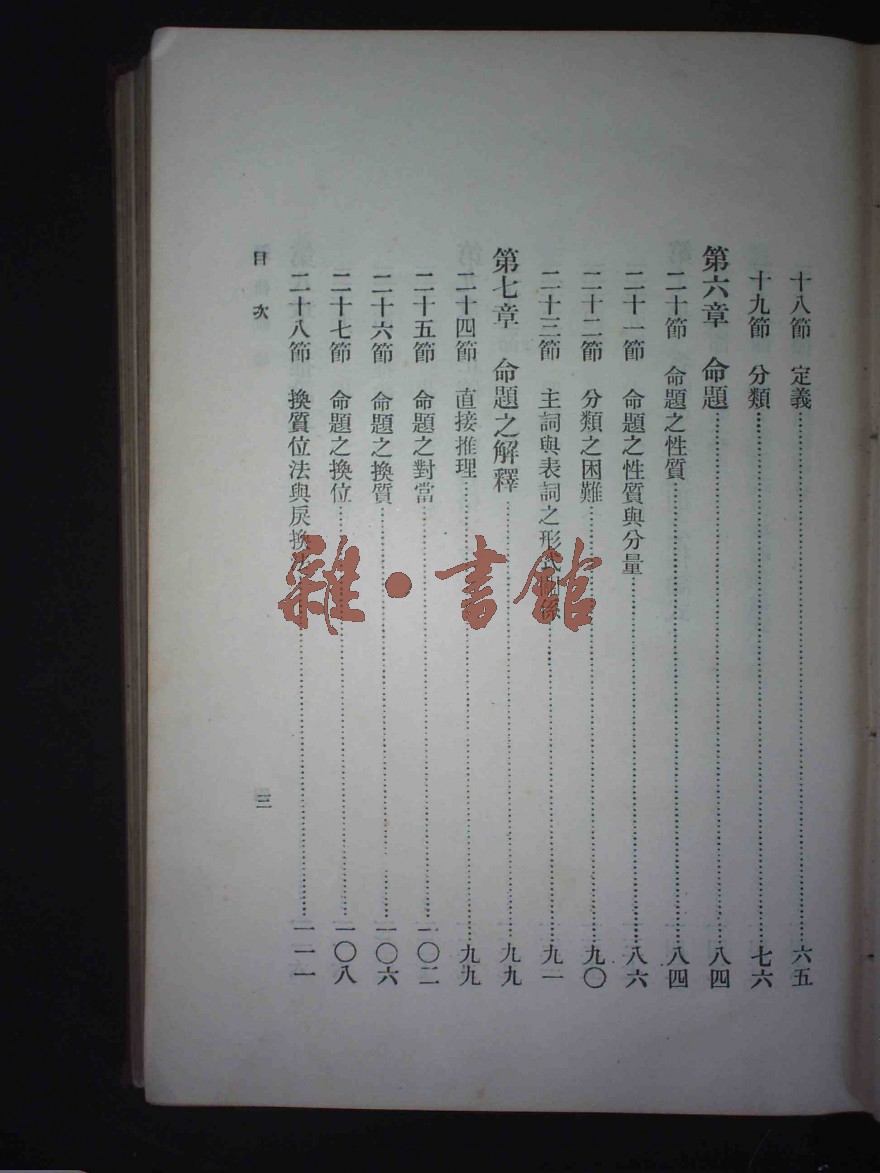 十八節　定義……六五
十九節　分類……七六
第六章　命題……八四
二十節　命題之性質……八四
二十一節　命題之性質與分量……八六
二十二節　分類之困難……九〇
二十三節　主詞與表詞之形式關係……九一
第七章　命題之解釋……九九
二十四節　直接推理……九九
二十五節　命題之對當……一〇二
二十六節　命題之換質……一〇六
二十七節　命題之換位……一〇八
二十八節　換質位法與戾換法……一一一
目次
三
雜·書館